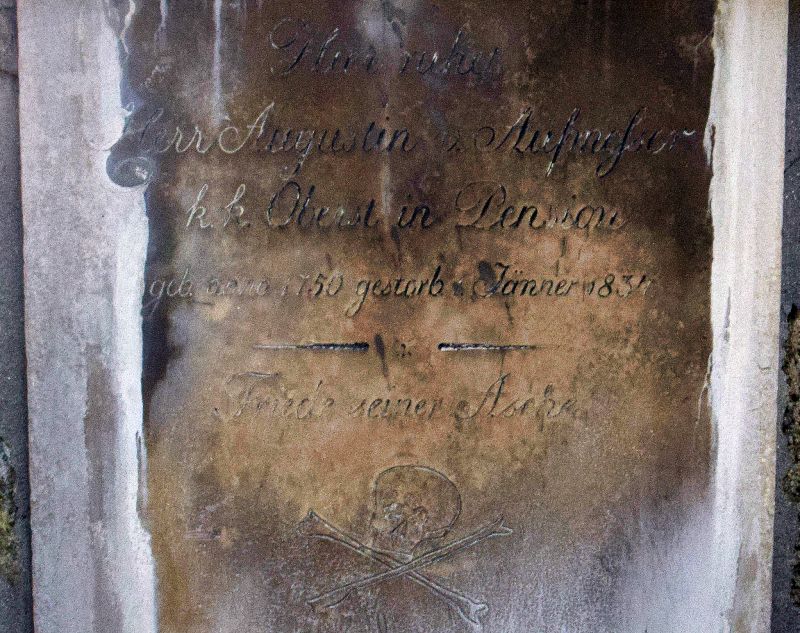 Hier ruhet
Herr Augustin v. Aufmesser
k. k. Oberst in Pension
geb. anno 1750 gestorb. Jänner 1834
Friede seiner Asche